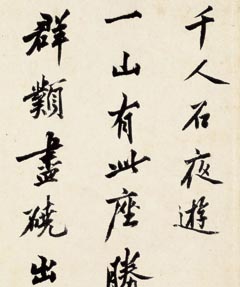 千人石夜遊
一山有此座勝
群類盡磽出